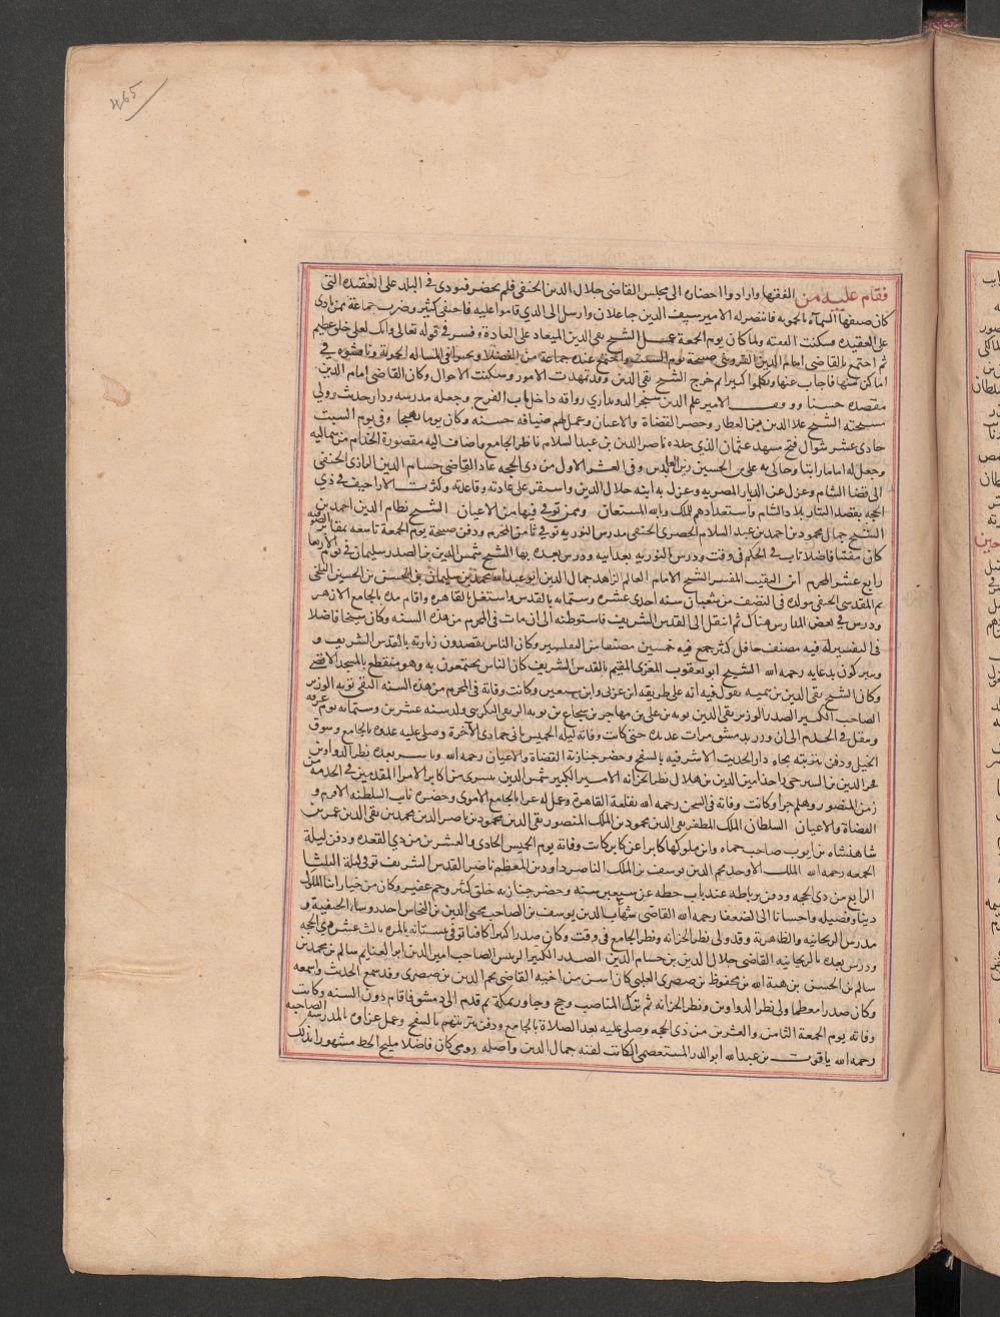 465
فقام عليه من الفقها وارادوا احضاره الى مجلس القاضى جلال الدين الحنفى فلم يحضر فنودى فى البلد على العقيده التى
كان صنفها المسماه بالحمويه فانتصر له الامير سيف الدين جاعلان وارسل الى الذى قاموا عليه فاختفى كثير وضرب جماعة ممن نادى
على العقيده وسكنت الفتنه ولما كان يوم الجمعة عمل الشيخ تقى الدين الميعاد على العادة وفسر فى قوله تعالى وانك لعلى خلق عظيم
ثم اجتمع بالقاضى امام الدين القزوينى صبيحة يوم السبت واجتمع عنده جماعة من الفضلا وبحثوا فى المساله الحمويه وناقشوه فى
اماكن منها فاجاب عنها وتكلموا كثيرا ثم خرج الشيخ تقى الدين وقد تمهدت الامور وسكنت الاحوال وكان القاضى امام الدين
مقصده حسنا ووقف الامير علم الدين سنجر الدويدارى رواقه داخل باب الفرج وجعله مدرسه ودار حديث وولى
مسيخته الشيخ علا الدين بن العطار وحضر القضاة والاعيان وعمل لهم ضيافه حسنه وكان يوما بهيجا وفى يوم السبت
حادى عشر شوال فتح مشهد عثمان الذى جدده ناصر الدين بن عبد السلام ناظر الجامع واضاف اليه مقصورة الخدام من شماليه
وجعل له اماما راتبا وحاكى به على بن الحسين زين العابدين وفى العشر الاول من ذى الحجه عاد القاضى حسام الدين الرازى الحنفى
الى قضا الشام وعزل عن الديار المصريه وعزل به ابنه جلال الدين واستقر على عادته وقاعدته وكثرت الاراجيف فى ذى
الحجه بقصد التتار بلاد الشام واستعدادهم لذلك وبالله المستعان وممن توفى فيها من الاعيان الشيخ نظام الدين احمد بن
الشيخ جمال محمود بن احمد بن عبد السلام الحصرى الحنفى مدرس النوريه توفى ثامن المحرم ودفن صبيحة يوم الجمعة تاسعه بمقابر الصوفيه
كان مفتيا فاضلا ناب فى الحكم فى وقت ودرس بالنوريه بعد ابيه ودرس بعده بها الشيخ شمس الدين بن الصدر سليمان فى يوم الاربعا
رابع عشر المحرم ابن النقيب المفسر الشيخ الامام العالم الزاهد جمال الدين ابو عبد الله محمد بن سليمان بن الحسن بن الحسين البلخى
ثم المقدسى الحنفى مولده فى النصف من شعبان سنه احدى عشره وستمايه بالقدس واستغل بالقاهره واقام مده بالجامع الازهر
ودرس فى بعض المدارس هناك ثم انتقل الى القدس الشريف فاستوطنه الى ان مات فى المحرم من هذه السنه وكان شيخا فاضلا
فى التفسير له فيه مصنف حافل كثير جمع فيه خمسين مصنفا من التفاسير وكان الناس يقصدون زيارته بالقدس الشريف و
ويتبركون بدعايه رحمه الله الشيخ ابو يعقوب المغربى المقيم بالقدس الشريف كان الناس يجتمعون به وهو منقطع بالمسجد الاقصى
وكان الشيخ تقى الدين بن تيميه يقول فيه انه على طريقه ابن عربى وابن سبعين وكانت وفاته فى المحرم من هذه السنه التقى توبه الوزير
الصاحب الكبير الصدر الوزير تقى الدين توبه بن على بن مهاجر بن شجاع بن توبه الربعى التكريتى ولد سنه عشرين وستمايه يوم عرفه
وتنقل فى الخدم الى ان وزر بدمشق مرات عديده حتى كانت وفاته ليله الخميس ثانى جمادى الآخرة وصلى عليه غدوه بالجامع وسوق
الخيل ودفن بتربته تجاه دار الحديث الاشرفيه بالسفح وحضر جنازته القضاة والاعيان رحمه الله وباشر بعده نظر الدواوين
فخر الدين بن السيرجى واخذ امين الدين بن هلال نظر الخزانه الامير الكبير شمس الدين بيسرى من اكابر الامرا المقدمين فى الخدمة
زمن المنصور وهلم جرا وكانت وفاته فى السجن رحمه الله بقلعة القاهرة وعمل له عزا بالجامع الاموى وحضره نايب السلطنه الافرم و
القضاة والاعيان السلطان الملك المظفر تقى الدين محمود بن الملك المنصور تقى الدين محمود بن ناصر الدين محمد بن تقى الدين عمر بن
شاهنشاه بن ايوب صاحب حماه وابن ملوكها كابرا عن كابر كانت وفاته يوم الخميس الحادى والعشرين من ذى القعده ودفن ليلة
الجمعه رحمه الله الملك الاوحد نجم الدين يوسف بن الملك الناصر داود بن المعظم ناصر القدس الشريف توفى ليلة الثلثا
الرابع من ذى الحجه ودفن برباطه عند باب حطه عن سبعين سنه وحضر جنازته خلق كثير وجم غفير وكان من خيار ابنا الملوك
دينا وفضيله واحسانا الى الضعفا رحمه الله القاضى شهاب الدين يوسف بن الصاحب محيى الدين بن النحاس احد روسا الحنفية و
مدرس الريحانيه والظاهريه وقد ولى نظر الخزانه ونظر الجامع فى وقت وكان صدرا كبيرا كافيا توفى ببستانه بالمزه ثالث عشر ذى الحجه
ودرس بعده بالريحانيه القاضى جلال الدين بن حسام الدين الصدر الكبير الرييس الصاحب امين الدين ابو الغنايم سالم بن محمد بن
سالم بن الحسن بن هبة الله بن محفوظ بن صصرى التغلبى كان اسن من اخيه القاضى نجم الدين بن صصرى وقد سمع الحديث واسمعه
وكان صدرا معظما ولى نظر الدواوين ونظر الخزانه ثم ترك المناصب وحج وجاور بمكة ثم قدم الى دمشق فاقام دون السنه وكانت
وفاته يوم الجمعة الثامن والعشرين من ذى الحجه وصلى عليه بعد الصلاة بالجامع ودفن بتربتهم بالسفح وعمل عزاوه بالمدرسه الصاحبيه
رحمه الله ياقوت بن عبد الله ابو الدر المستعصمى الكاتب لقبه جمال الدين واصله رومى كان فاضلا مليح الخط مشهورا بذلك